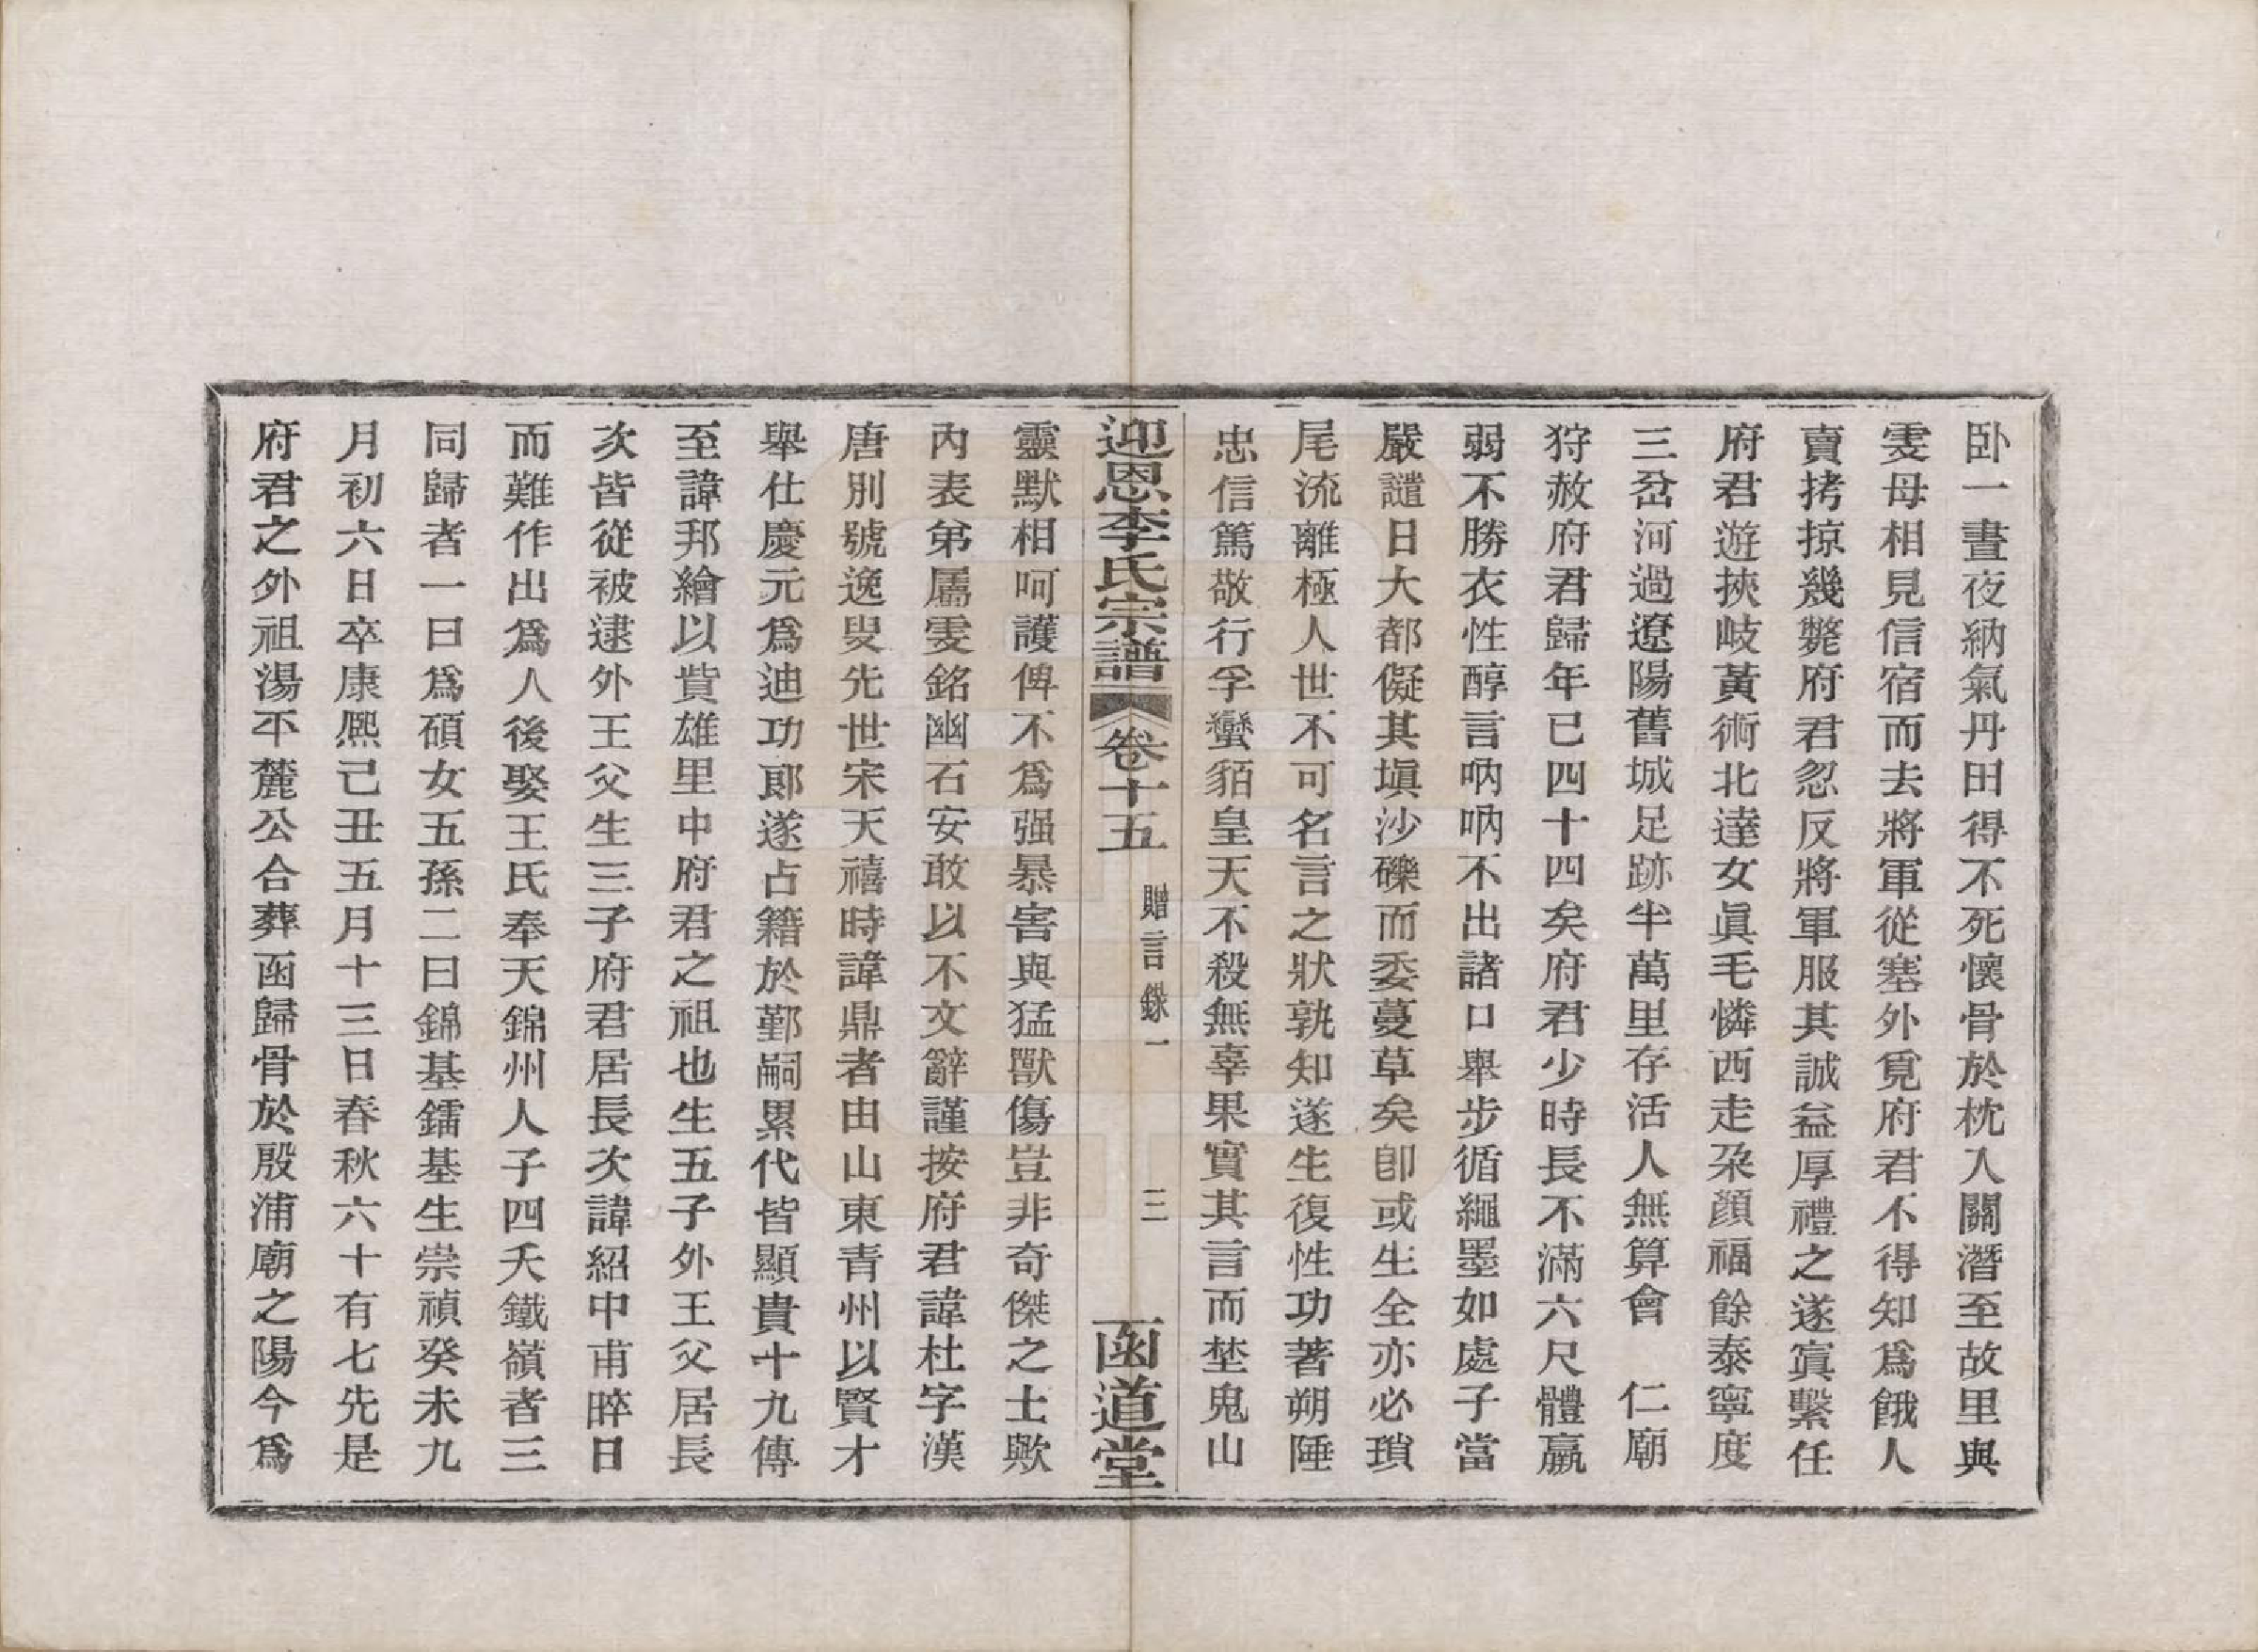 卧一晝夜納氣丹田得不死懷骨於枕入關潛至故里與
雯母相見信宿而去將軍從塞外覓府君不得知爲餓人
賣拷掠幾斃府君忍反將軍服其誠益厚禮之遂寘繫任
府君遊挾岐黃術北達女眞毛憐西走朶顏福餘泰寧度
三岔河過遼陽舊城足跡半萬里存活人無算會　仁廟
狩赦府君歸年已四十四矣府君少時長不滿六尺體羸
弱不勝衣性醇言吶吶不出諸口舉步循繩墨如處子當
嚴譴日大都儗其塡沙礫而委蔓草矣卽或生全亦必瑣
尾流離極人世不可名言之狀孰知遂生復性功著朔陲
忠信篤敬行孚蠻貊皇天不殺無辜果實其言而埜鬼山
迎恩李氏宗譜　卷十五　贈言錄一　三　函道堂
靈默相呵護俾不爲强暴害與猛獸傷豈非奇傑之士歟
內表弟屬雯銘幽石安敢以不文辭謹按府君諱杜字漢
唐別號逸叟先世宋天禧時諱鼎者由山東青州以賢才
舉仕慶元爲迪功郞遂占籍於鄞嗣累代皆顯貴十九傳
至諱邦繪以貲雄里中府君之祖也生五子外王父居長
次皆從被逮外王父生三子府君居長次諱紹中甫晬日
而難作出爲人後娶王氏奉天錦州人子四夭鐵嶺者三
同歸者一曰爲碩女五孫二曰錦基鐳基生崇禎癸未九
月初六日卒康熙己丑五月十三日春秋六十有七先是
府君之外祖湯平麓公合葬函歸骨於殷浦廟之陽今爲